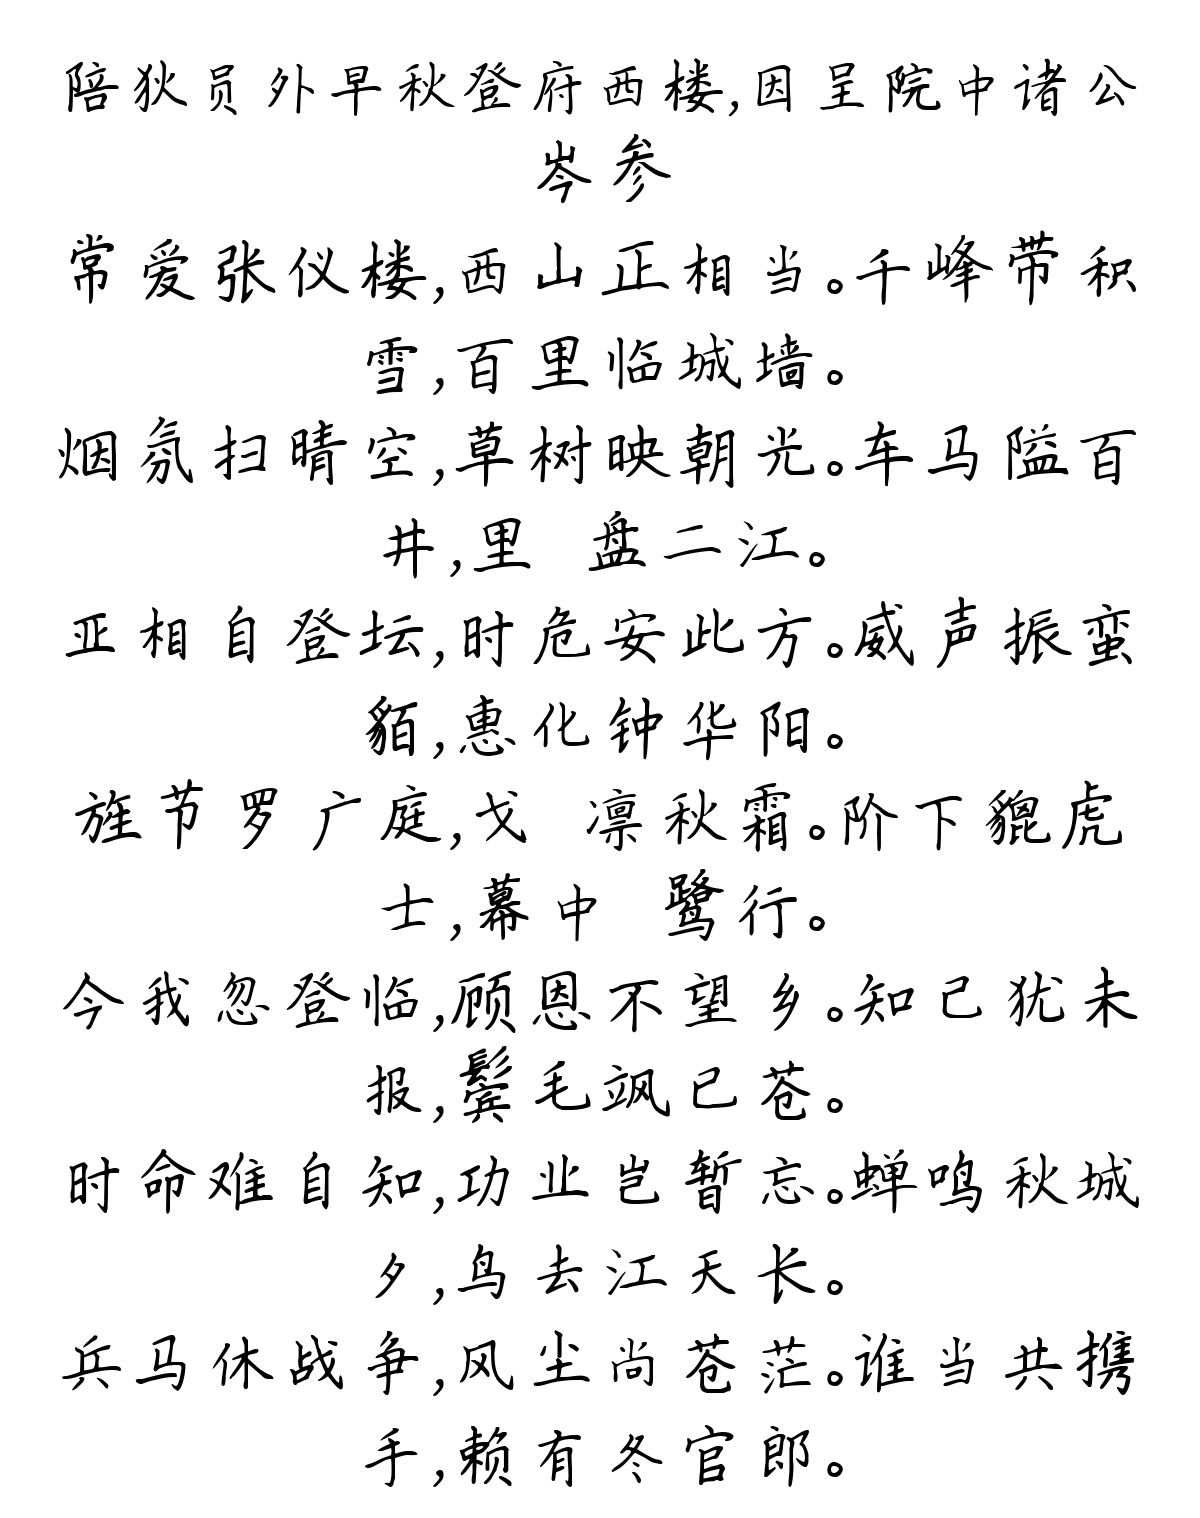 陪狄员外早秋登府西楼,因呈院中诸公
岑参
常爱张仪楼,西山正相当。千峰带积
雪,百里临城墙。
烟氛扫晴空,草树映朝光。车马隘百
井,里 盘二江。
亚相自登坛,时危安此方。威声振蛮
貊,惠化钟华阳。
旌节罗广庭,戈 凛秋霜。阶下貔虎
士,幕中 鹭行。
今我忽登临,顾恩不望乡。知己犹未
报,鬓毛飒已苍。
时命难自知,功业岂暂忘。蝉鸣秋城
夕,鸟去江天长。
兵马休战争,风尘尚苍茫。谁当共携
手,赖有冬官郎。